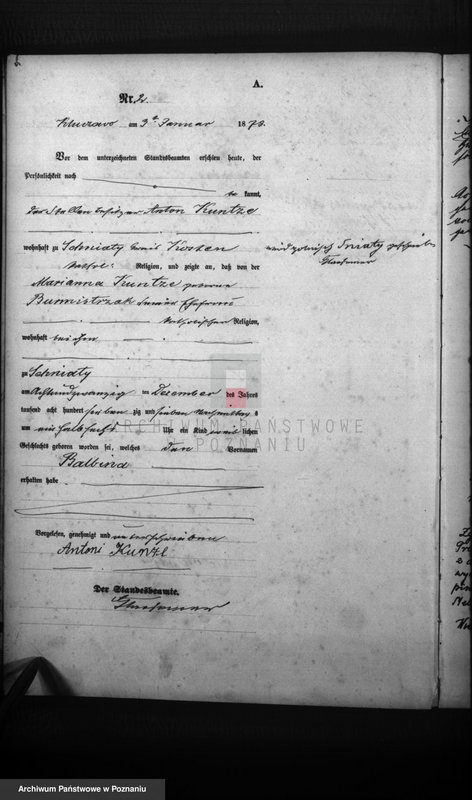 A.
Nr. 2.
am 3ten Januar 1878.
Vor dem unterzeichneten Standesbeamten erschien heute, der
Persönlichkeit nach
be kannt,
Anton Kuntze
wohnhaft zu Schniaty Kreis Kosten
wird polnisch Sniaty geschrieben
Religion, und zeigte an, daß von der
Marianna Kuntze geborene
Bumistrzak seiner Ehefrau
katholischer Religion,
wohnhaft bei ihm
zu Schniaty
am achtundzwanzig ten Dezember des Jahres
tausend acht hundert sieben zig und sieben Nachmittags
um Uhr ein Kind weib lichen
Geschlechts geboren worden sei, welches den Vornamen
Balbina
erhalten habe
Vorgelesen, genehmigt und unterschrieben
Antoni Kunze
Der Standesbeamte.
ARCHIWUM PAŃSTWOWE
W POZNANIU
Archiwum Państwowe w Poznaniu